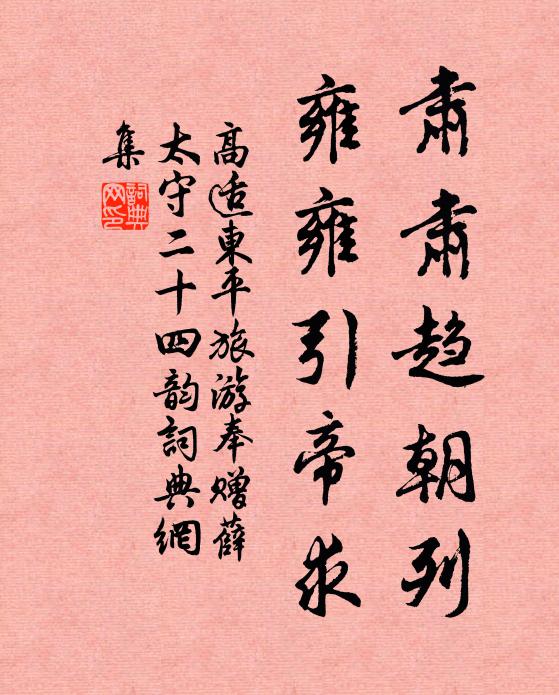 肅肅趋朝列
雍雍引帝求
高适東平旅游奉赠薛
太守二十四韵詞典網
集
詞典
网印